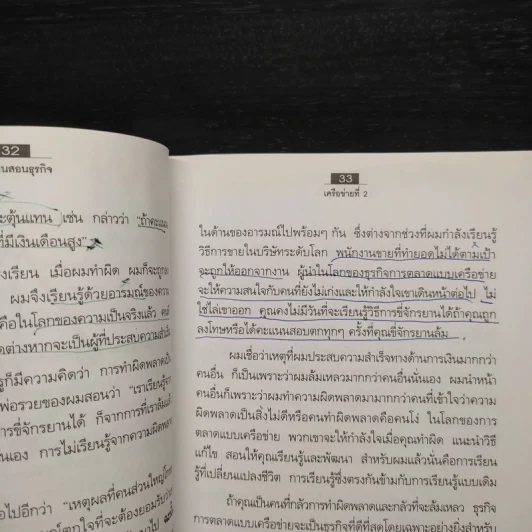 32
นสอนธุรกิจ
ะตุ้นแทน เช่น กล่าวว่า "ถ้าคะแนน
ที่มีเงินเดือนสูง"
งเรียน เมื่อผมทำผิด ผมก็จะถูก
ผมจึงเรียนรู้ด้วยอารมณ์ของความ
คือในโลกของความเป็นจริงแล้ว คนที่
ต่างหากจะเป็นผู้ที่ประสบความสำเร็จ
รูก็มีความคิดว่า การทำผิดพลาดเป็น
พ่อรวยของผมสอนว่า "เราเรียนรู้จาก
การขี่จักรยานได้ ก็จากการที่เราล้มแล้ว
นเอง การไม่เรียนรู้จากความผิดพลาด
อไปอีกว่า "เหตุผลที่คนส่วนใหญ่โกหก
ตกใจที่จะต้องยอมรับว่า
33
เครือข่ายที่ 2
ในด้านของอารมณ์ไปพร้อมๆ กัน ซึ่งต่างจากช่วงที่ผมกำลังเรียนรู้
วิธีการขายในบริษัทระดับโลก พนักงานขายที่ทำยอดไม่ได้ตามเป้า
จะถูกให้ออกจากงาน ผู้นำในโลกของธุรกิจการตลาดแบบเครือข่าย
จะให้ความสนใจกับคนที่ยังไม่เก่งและให้กำลังใจเขาเดินหน้าต่อไป ไม่
ใช่ไล่เขาออก คุณคงไม่มีวันที่จะเรียนรู้วิธีการขี่จักรยานได้ถ้าคุณถูก
ลงโทษหรือได้คะแนนสอบตกทุกๆ ครั้งที่คุณขี่จักรยานล้ม
ผมเชื่อว่าเหตุที่ผมประสบความสำเร็จทางด้านการเงินมากกว่า
คนอื่น ก็เป็นเพราะว่าผมล้มเหลวมากกว่าคนอื่นนั่นเอง ผมนำหน้า
คนอื่นก็เพราะว่าผมทำความผิดพลาดมามากกว่าคนที่เข้าใจว่าความ
ผิดพลาดเป็นสิ่งไม่ดีหรือคนทำผิดพลาดคือคนโง่ ในโลกของการ
ตลาดแบบเครือข่าย พวกเขาจะให้กำลังใจเมื่อคุณทำผิด แนะนำวิธี
แก้ไข สอนให้คุณเรียนรู้และพัฒนา สำหรับผมแล้วนั่นคือการเรียน
รู้ที่เปลี่ยนแปลงชีวิต การเรียนรู้ซึ่งตรงกันข้ามกับการเรียนรู้แบบเดิม
ถ้าคุณเป็นคนที่กลัวการทำผิดพลาดและกลัวที่จะล้มเหลว ธุรกิจ
การตลาดแบบเครือข่ายจะเป็นธุรกิจที่ดีที่สุดโดยเฉพาะอย่างยิ่งสำหรับ